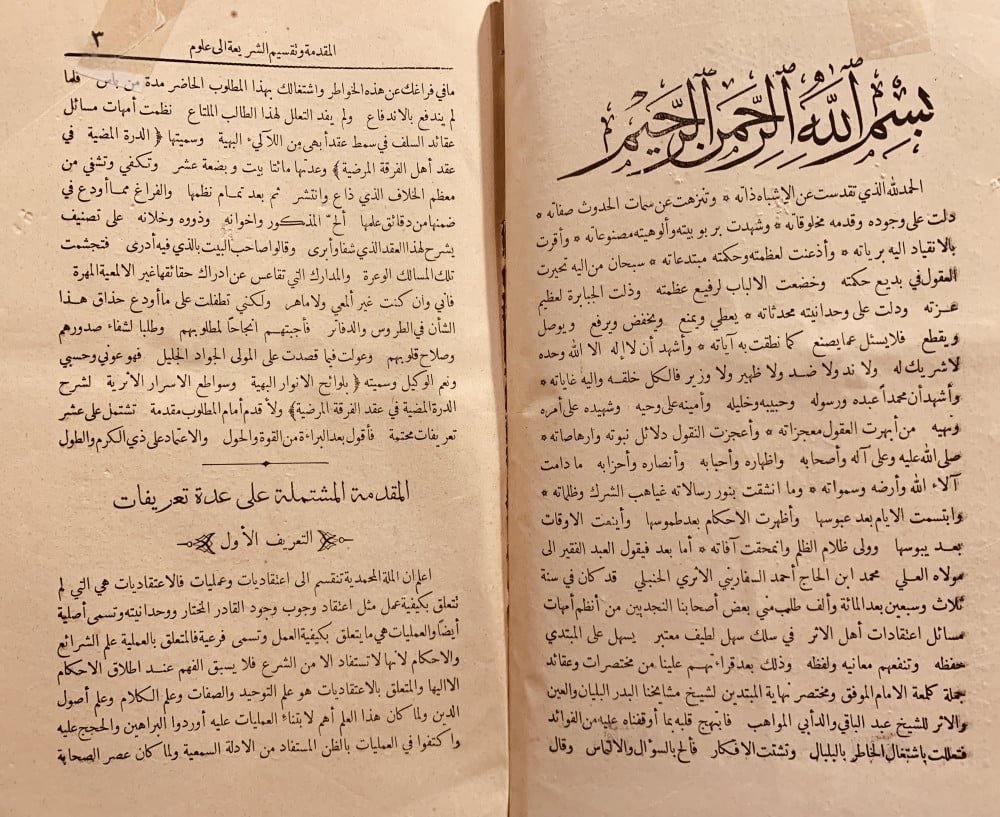 بسم الله الرحمن الرحيم
الحمد لله الذي تقدست عن الاشباه ذاته * وتنزهت عن سمات الحدوث صفاته *
دلت على وجوده وقدمه مخلوقاته * وشهدت بربوبيته وألوهيته مصنوعاته * وأقرت
بالانقياد اليه برياته * وأذعنت لعظمته وحكمته مبتدعاته * سبحان من اليه تحيرت
العقول في بديع حكمته وخضعت الالباب لرفيع عظمته وذلت الجبابرة لعظيم
عزته ودلت على وحدانيته محدثاته * يعطي ويمنع ويخفض ويرفع ويوصل
ويقطع فلا يسئل عما يصنع كما نطقت به آياته * وأشهد أن لا إله الا الله وحده
لا شريك له ولا ند ولا ضد ولا ظهير ولا وزير فالكل خلقه واليه غاياته *
وأشهد أن محمداً عبده ورسوله وحبيبه وخليله وأمينه على وحيه وشهيده على أمره
ونهيه من أبهرت العقول معجزاته * وأعجزت النقول دلائل نبوته وارهاصاته *
صلى الله عليه وعلى آله وأصحابه واظهاره وأحبابه وأنصاره وأحزابه ما دامت
آلاء الله وأرضه وسمواته * وما انشقت بنور رسالاته غياهب الشرك وظلماته *
وابتسمت الايام بعد عبوسها وأظهرت الاحكام بعد طموسها وأينعت الاوقات
بعد يبوسها وولى ظلام الظلم وانمحقت آفاته * أما بعد فيقول العبد الفقير الى
مولاه العلي محمد ابن الحاج أحمد السفاريني الأثري الحنبلي قد كان في سنة
ثلاث وسبعين بعد المائة وألف طلب مني بعض أصحابنا النجديين من أنظم أمهات
مسائل اعتقادات أهل الاثر في سلك سهل لطيف معتبر يسهل على المبتدي
حفظه وتنفعهم معانيه ولفظه وذلك بعد قراءتهم علينا من مختصرات وعقائد
جملة كلمعة الامام الموفق ومختصر نهاية المبتدين لشيخ مشايخنا البدر البلبان والعين
والاثر للشيخ عبد الباقي والد أبي المواهب فابتهج قلبه بما أوقفناه عليه من الفوائد
فتعللت باشتغال الخاطر بالبلبال وتشتت الافكار فألح بالسؤال والالتماس وقال
المقدمة وتقسيم الشريعة الى علوم ٣
ما في فراغك عن هذه الخواطر واشتغالك بهذا المطلوب الحاضر مدة من باس فلما
لم يندفع بالاندفاع ولم يفد التعلل لهذا الطالب الملتاع نظمت أمهات مسائل
عقائد السلف في سمط عقد أبهى من اللآلئ البهية وسميتها ﴿ الدرة المضية في
عقد أهل الفرقة المرضية ﴾ وعدتها مائتا بيت وبضعة عشر وتكفي وتشفي من
معظم الخلاف الذي ذاع وانتشر ثم بعد تمام نظمها والفراغ مما أودع في
ضمنها من دقائق علمها ألحّ المذكور واخوانه وذووه وخلانه على تصنيف
يشرح لهذا العقد الذي شفا وأبرى وقالوا صاحب البيت بالذي فيه أدرى فتجشمت
تلك المسالك الوعرة والمدارك التي تقاعس عن ادراك حقائقها غير الالمعية المهرة
فاني وان كنت غير ألمعي ولا ماهر ولكني تطفلت على ما أودع حذاق هذا
الشأن في الطروس والدفاتر فأجبتهم انجاحاً لمطلوبهم وطلبا لشفاء صدورهم
وصلاح قلوبهم وعولت فيما قصدت على المولى الجواد الجليل فهو عوني وحسبي
ونعم الوكيل وسميته ﴿ بلوائح الانوار البهية وسواطع الاسرار الأثرية لشرح
الدرة المضية في عقد الفرقة المرضية ﴾ ولأقدم أمام المطلوب مقدمة تشتمل على عشر
تعريفات محتمة فأقول بعد البراءة من القوة والحول والاعتماد على ذي الكرم والطول
المقدمة المشتملة على عدة تعريفات
التعريف الأول
اعلم ان الملة المحمدية تنقسم الى اعتقاديات وعمليات فالاعتقاديات هي التي لم
تتعلق بكيفية عمل مثل اعتقاد وجوب وجود القادر المختار ووحدانيته وتسمى أصلية
أيضاً والعمليات هي ما يتعلق بكيفية العمل وتسمى فرعية فالمتعلق بالعملية علم الشرائع
والاحكام لانها لا تستفاد الا من الشرع فلا يسبق الفهم عند اطلاق الاحكام
الا اليها والمتعلق بالاعتقاديات هو علم التوحيد والصفات وعلم الكلام وعلم أصول
الدين ولما كان هذا العلم أهم لابتناء العمليات عليه أوردوا البراهين والحجج عليه
واكتفوا في العمليات بالظن المستفاد من الادلة السمعية ولما كان عصر الصحابة